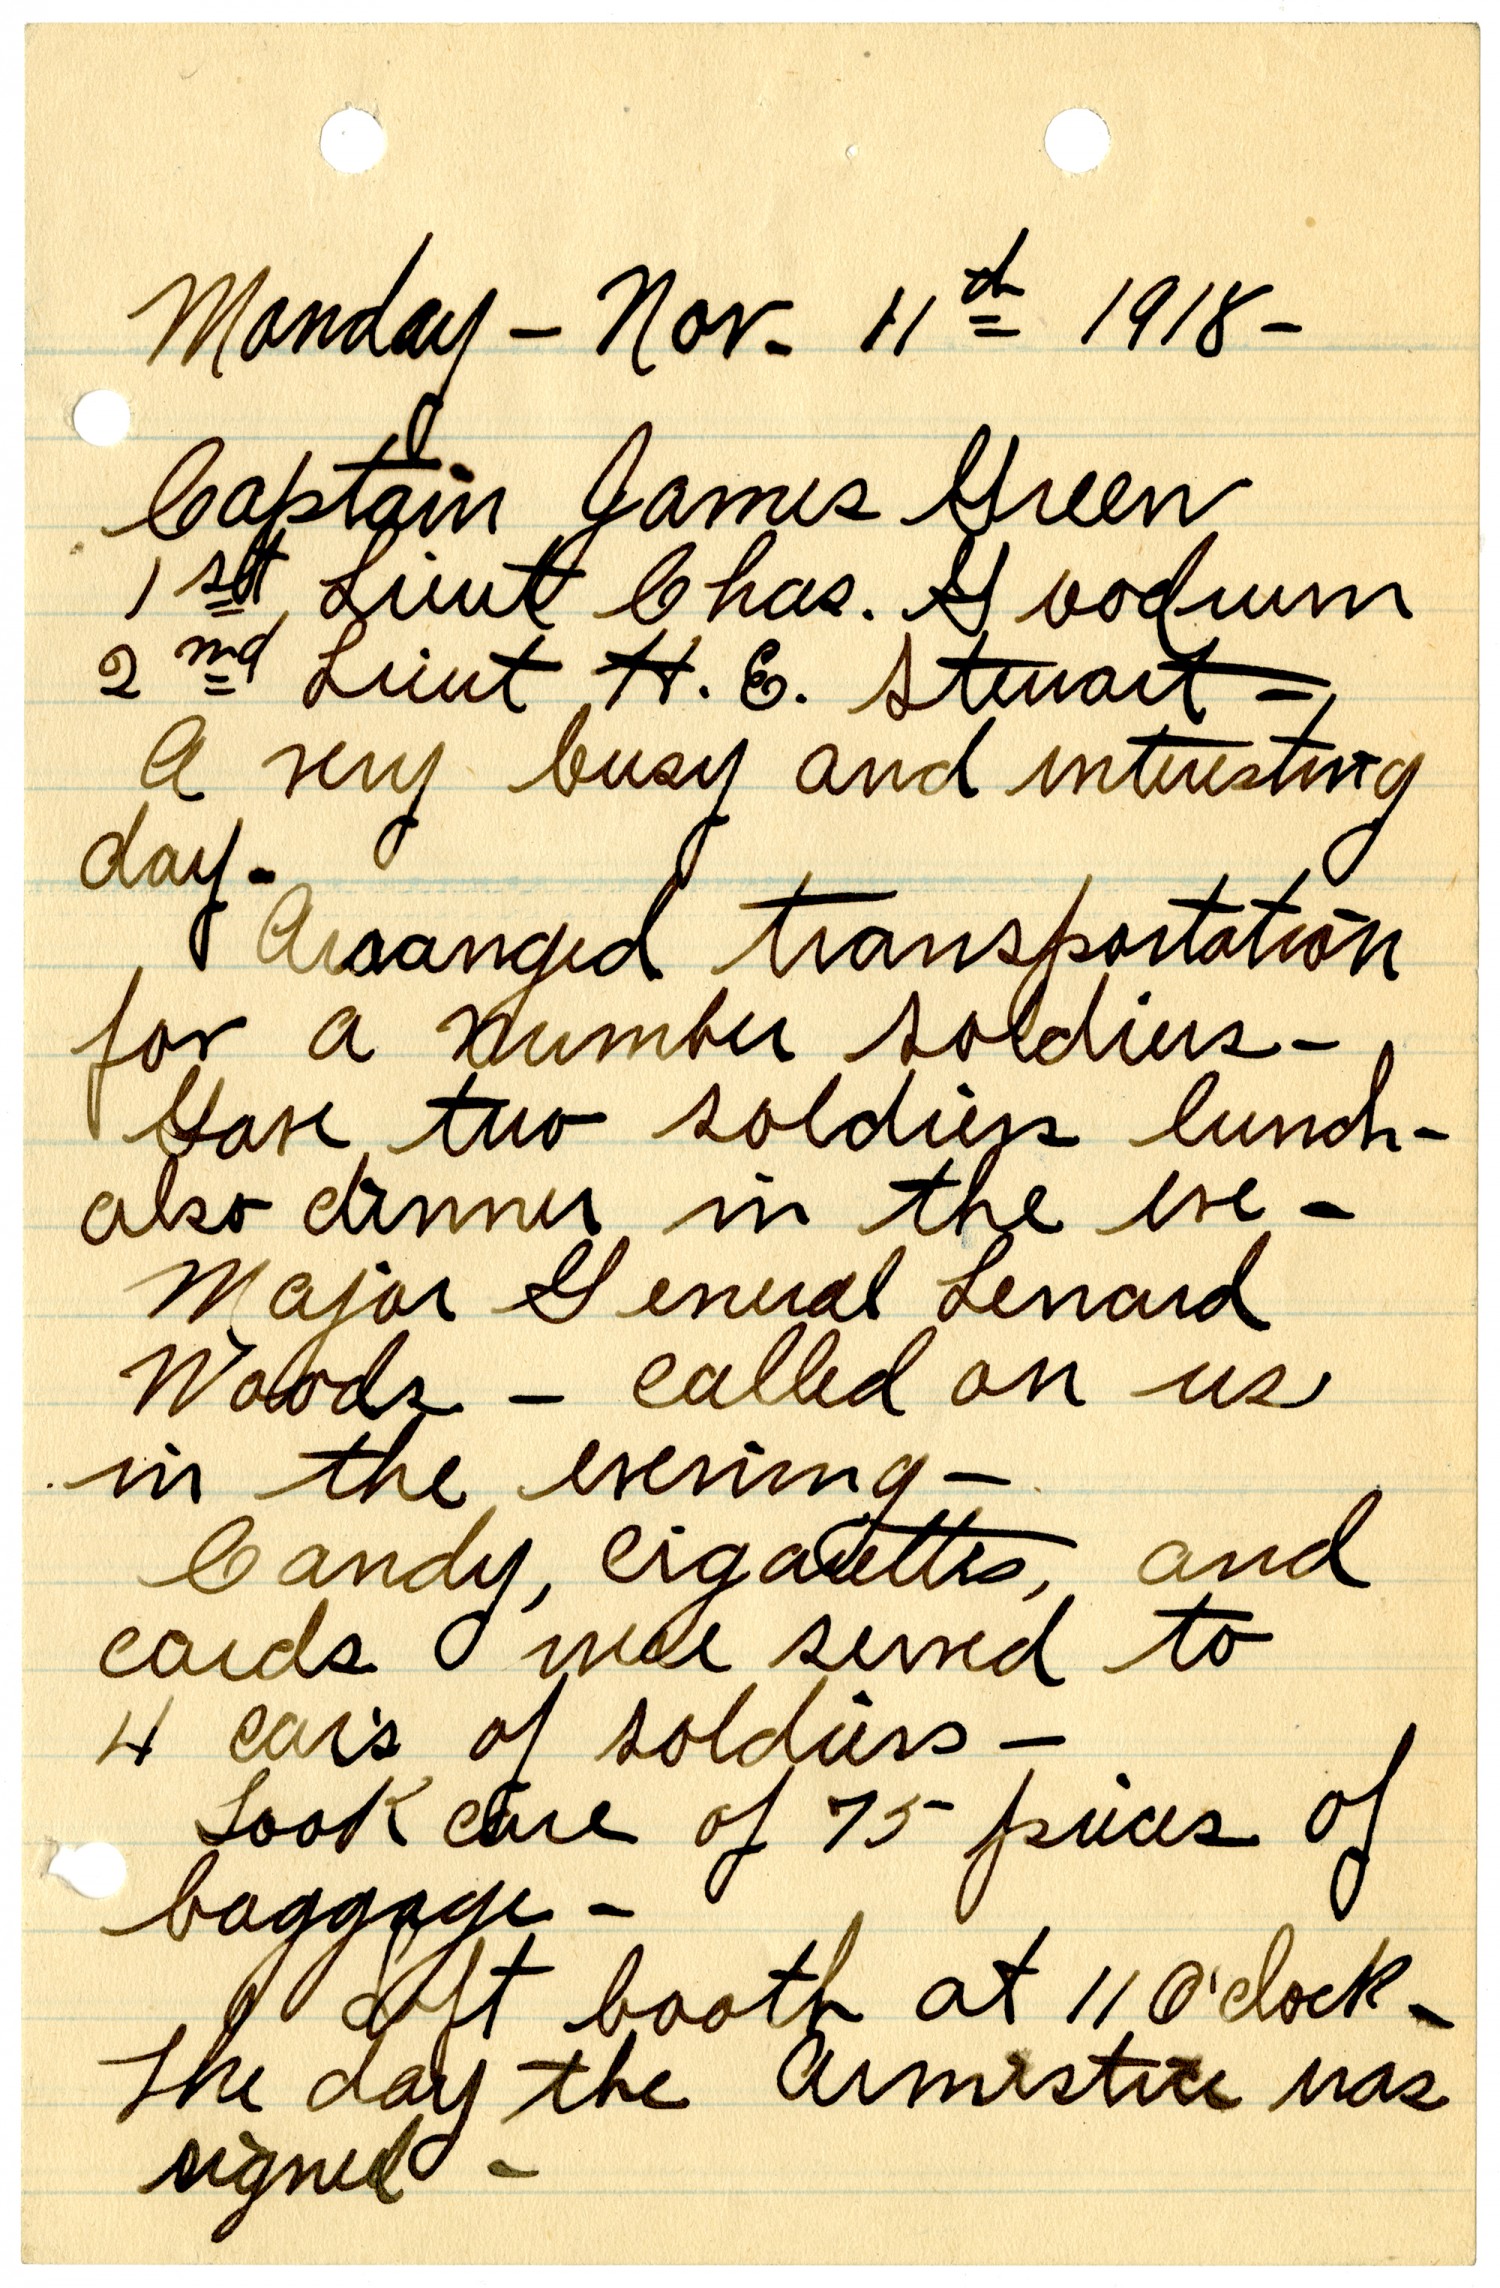 Monday - Nov. 11th 1918 -
Captain James Green
1st Lieut Chas. Goodrum
2nd Lieut H. E. Stewart -
A very busy and interesting
day -
Arranged transportation
for a number soldiers -
Gave two soldiers lunch -
also dinner in the eve -
Major General Lenard
Woods - called on us
in the evening -
Candy, cigarettes, and
cards were served to
4 cars of soldiers -
Took care of 75 pieces of
baggage -
Left booth at 11 O'clock -
The day the Armistice was
signed -